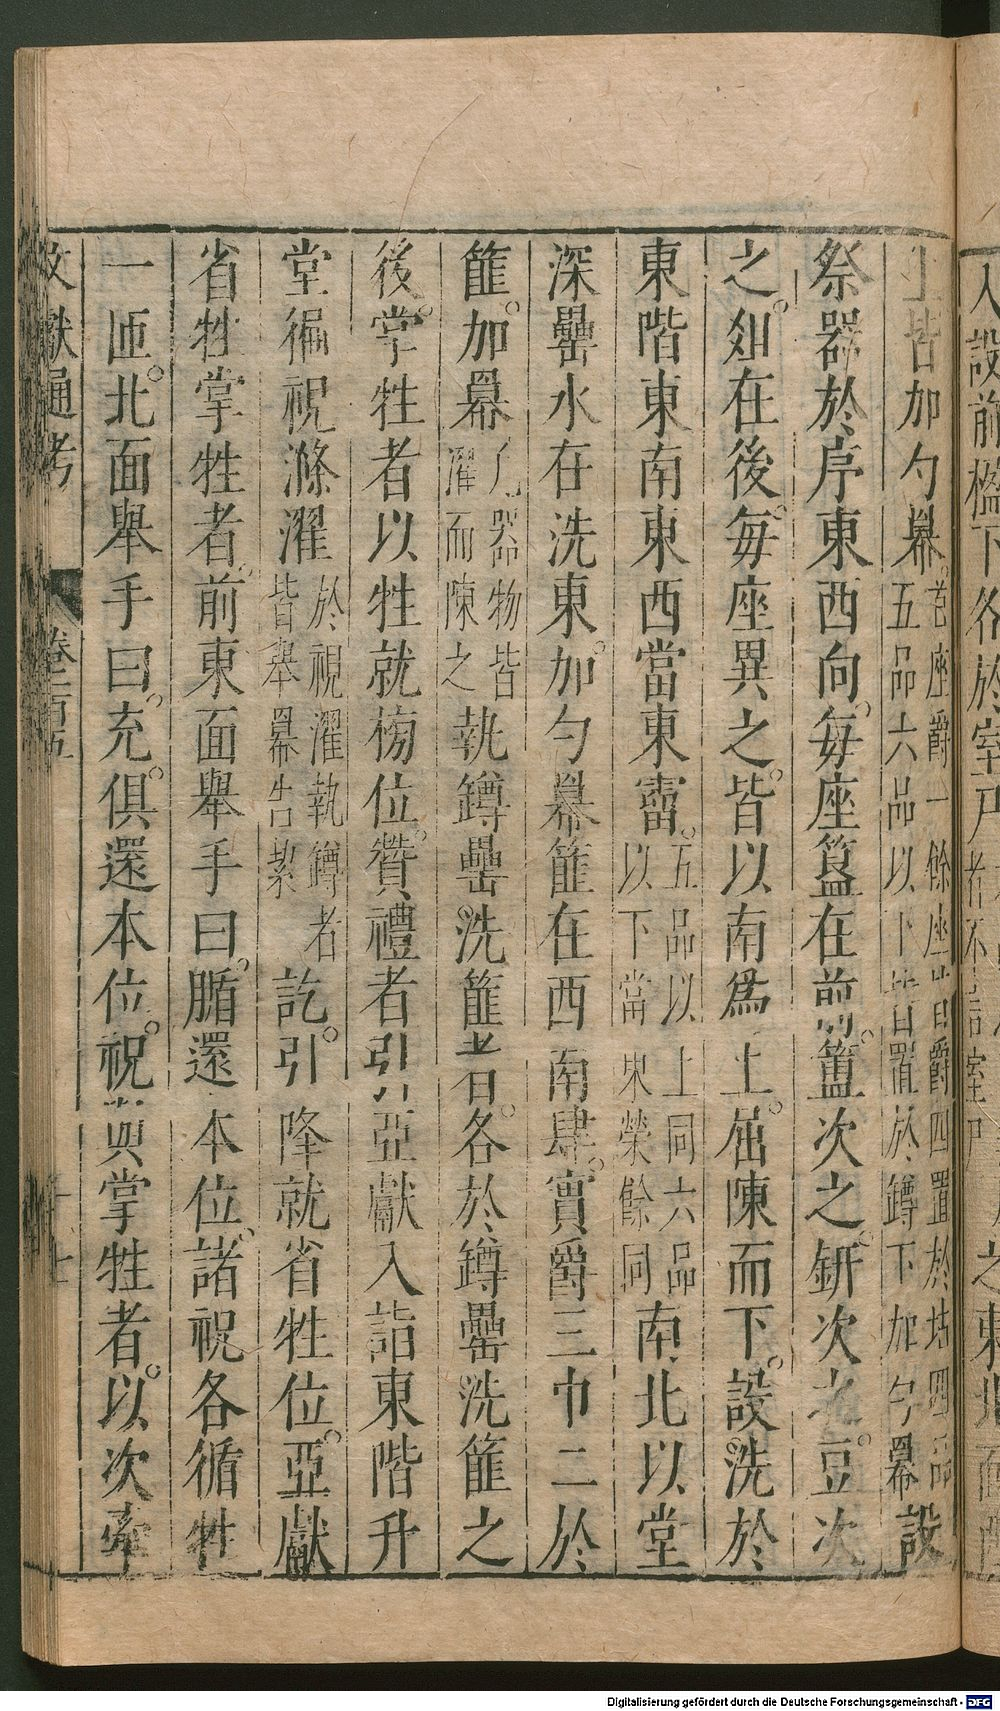 上皆加勺冪首座爵一餘座皆爵四置於坫四品五品六品以下皆置於罇下加勺冪設
祭器於序東西向每座簋在前簠次之鉶次之豆次
之俎在後每座異之皆以南爲上屈陳而下設洗於
東階東南東西當東霤五品以上同六品以下當東榮餘同南北以堂
深罍水在洗東加勺冪篚在西南肆實爵三巾二於
篚加冪凡器物皆濯而陳之執罇罍洗篚者各於罇罍洗篚之
後掌牲者以牲就榜位贊禮者引亞獻入詣東階升
堂徧視滌濯於視濯執罇者皆舉冪告絜訖引降就省牲位亞獻
省牲掌牲者前東面舉手曰腯還本位諸祝各循牲
一匝北面舉手曰充俱還本位祝與掌牲者以次牽
文獻通考 卷二百五 十七
入設前楹下各於室戶
之東北面
Digitalisierung gefördert durch die Deutsche Forschungsgemeinschaft - DFG